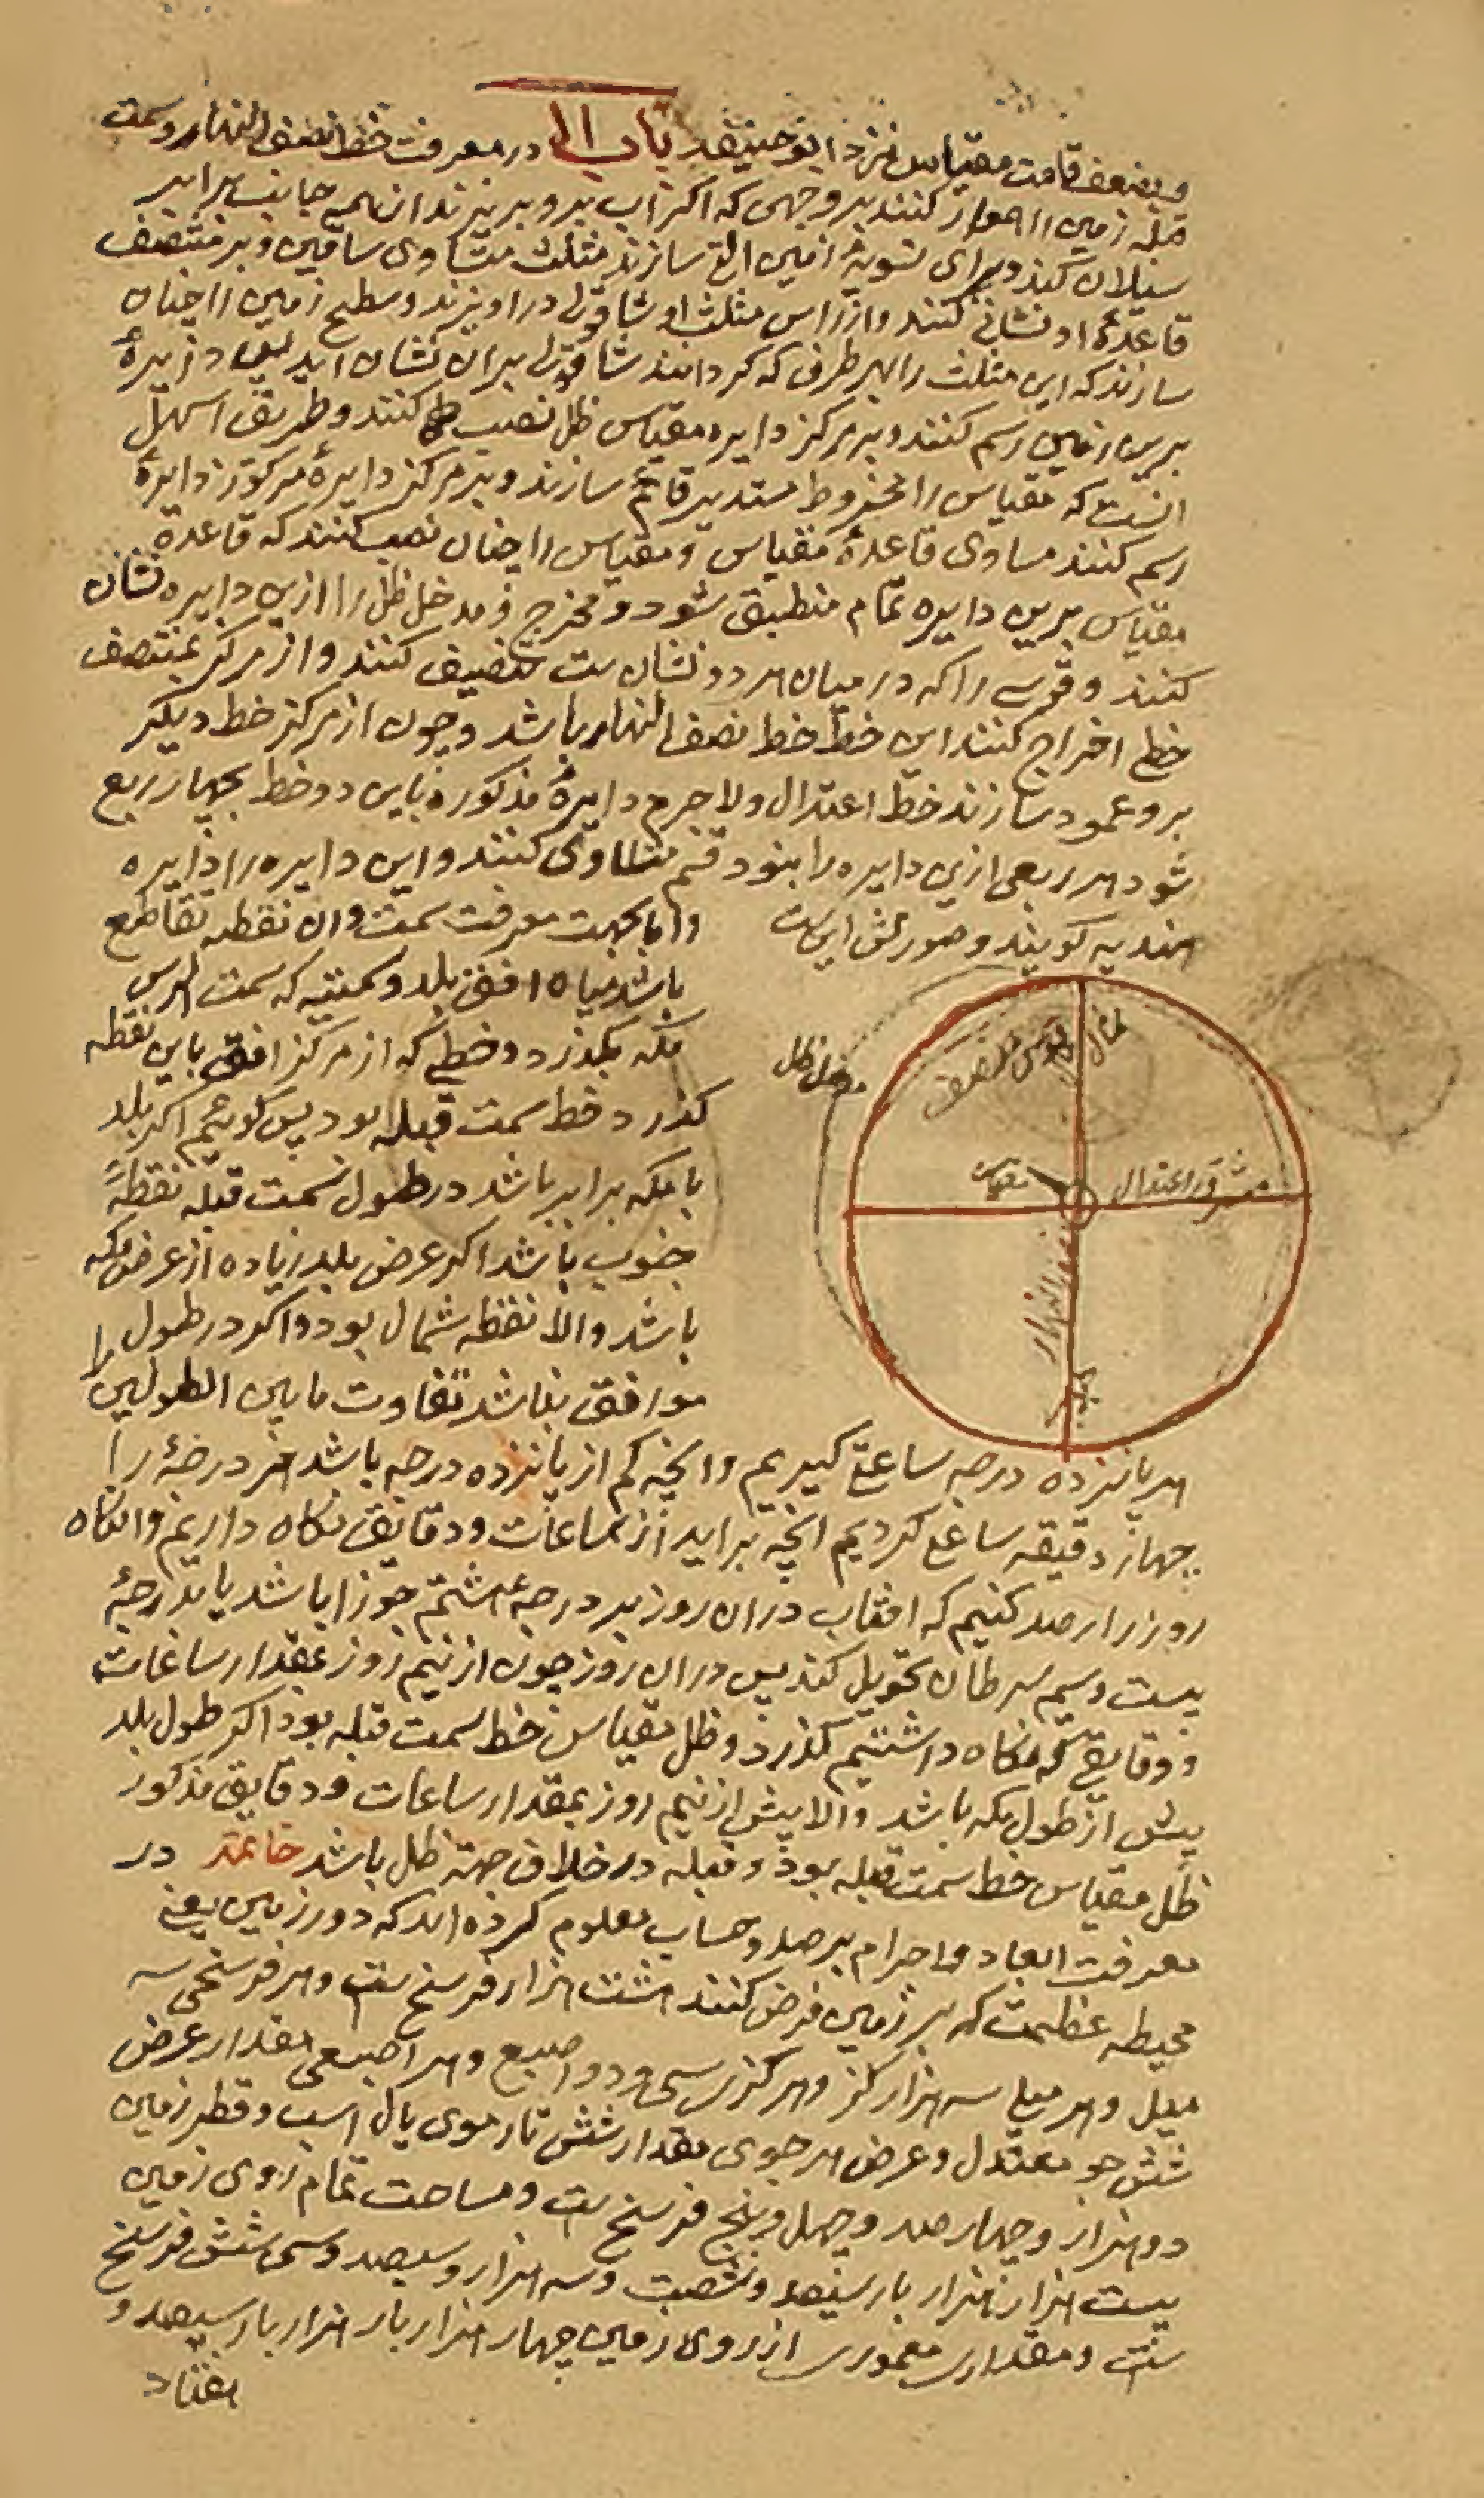 و بضعف قامت مقیاس نزد ابو حنیفه باب ۱۱ در معرفت خط نصف النهار و سمت
قبله زمین را هموار کنند بر وجهی که اگر آب برو بریزند از همه جانب برابر
سیلان کند و برای تسویهٔ زمین التی سازند مثلث متساوی ساقین و بر منتصف
قاعدهٔ او نشانی کنند و از راس مثلث او شاقولی در آویزند و سطح زمین را چنان
سازند که این مثلث را بهر طرفی که گردانند شاقول بران نشان آید پس دایرهٔ
برین زمین رسم کنند و بر مرکز دایره مقیاس ظل نصب کنند و طریق اسهل
انست که مقیاس را مخروط مستدیر قائم سازند و بر مرکز دایرهٔ مذکور دایرهٔ
رسم کنند مساوی قاعدهٔ مقیاس و مقیاس را چنان نصب کنند که قاعدهٔ
مقیاس برین دایره تمام منطبق شود و مخرج و مدخل ظل را ازین دایره نشان
کنند و قوسی را که در میان هر دو نشان ست تنصیف کنند و از مرکز بمنتصف
خطی اخراج کنند این خط خط نصف النهار باشد و چون از مرکز خط دیگر
برو عمود سازند خط اعتدال و لاجرم دایرهٔ مذکوره باین دو خط بچهار ربع
شود هر ربعی ازین دایره را بنود قسم متساوی کنند و این دایره را دایره
هندیه گویند و صورتش این ست
و اما بجهت معرفت سمت و ان نقطه تقاطع
باشد میان افق بلد و سمتیه که بسمت الراس
مکه بگذرد و خطی که از مرکز افق باین نقطه
گذرد خط سمت قبله بود پس گوئیم اگر بلد
با مکه برابر باشد در طول سمت قبله نقطهٔ
جنوب باشد اگر عرض بلد زیاده از عرض مکه
باشد و الا نقطه شمال بود و اگر در طول
موافق نباشد تفاوت ما بین الطولین را
شمال
قوس منصف
مدخل ظل
مقیاس
مشرق اعتدال
نصف النهار
هر پانزده درجه ساعتی گیریم و انچه کم از پانزده درجه باشد هر درجهٔ را
چهار دقیقه ساعتی گردیم انچه براید از ساعات و دقایق نگاه داریم و انگاه
روز را رصد کنیم که افتاب دران روز بر درجهٔ هشتم جوزا باشد یا بدرجهٔ
بیست و سیم سرطان تحویل کند پس دران روز چون از نیم روز بمقدار ساعات
و دقایقی که نگاه داشتیم گذرد ظل مقیاس خط سمت قبله بود اگر طول بلد
بیش از طول مکه باشد والا پیش از نیم روز بمقدار ساعات و دقایق مذکور
ظل مقیاس خط سمت قبله بود و قبله در خلاف جهة ظل باشد خاتمة در
معرفت ابعاد و اجرام برصد و حساب معلوم کرده اند که دور زمین یعنی
محیط عظیمت که بر زمین فرض کنند هشت هزار فرسخ ست و هر فرسخی سه
میل و هر میلی سه هزار گز و هر گزی سی و دو اصبع و هر اصبعی مقدار عرض
شش جو معتدل و عرض هر جوی مقدار شش تار موی یال اسب و قطر زمین
دو هزار و چهارصد و چهل و پنج فرسخ ست و مساحت تمام روی زمین
بیست هزار هزار بار سیصد و شصت و سه هزار و سیصد و سی شش فرسخ
ست و مقدار معموری از روی زمین چهار هزار بار هزار بار سیصد و
هفتاد